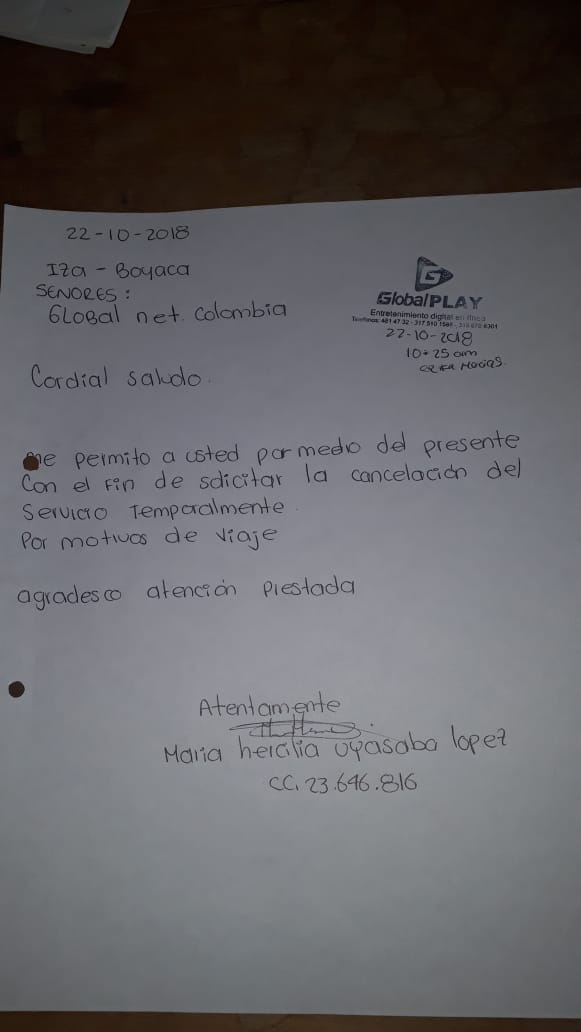 22-10-2018
Iza - Boyaca
SENORES:
GLOBAL net. Colombia
GlobalPLAY
Entretenimiento digital en línea
22-10-2018
10:25 am
Cordial saludo.
me permito a usted por medio del presente
Con el fin de solicitar la cancelación del
Servicio Temporalmente.
Por motivos de viaje
agradesco atención prestada
Atentamente
Maria hercilia uyasaba lopez
CC. 23.646.816